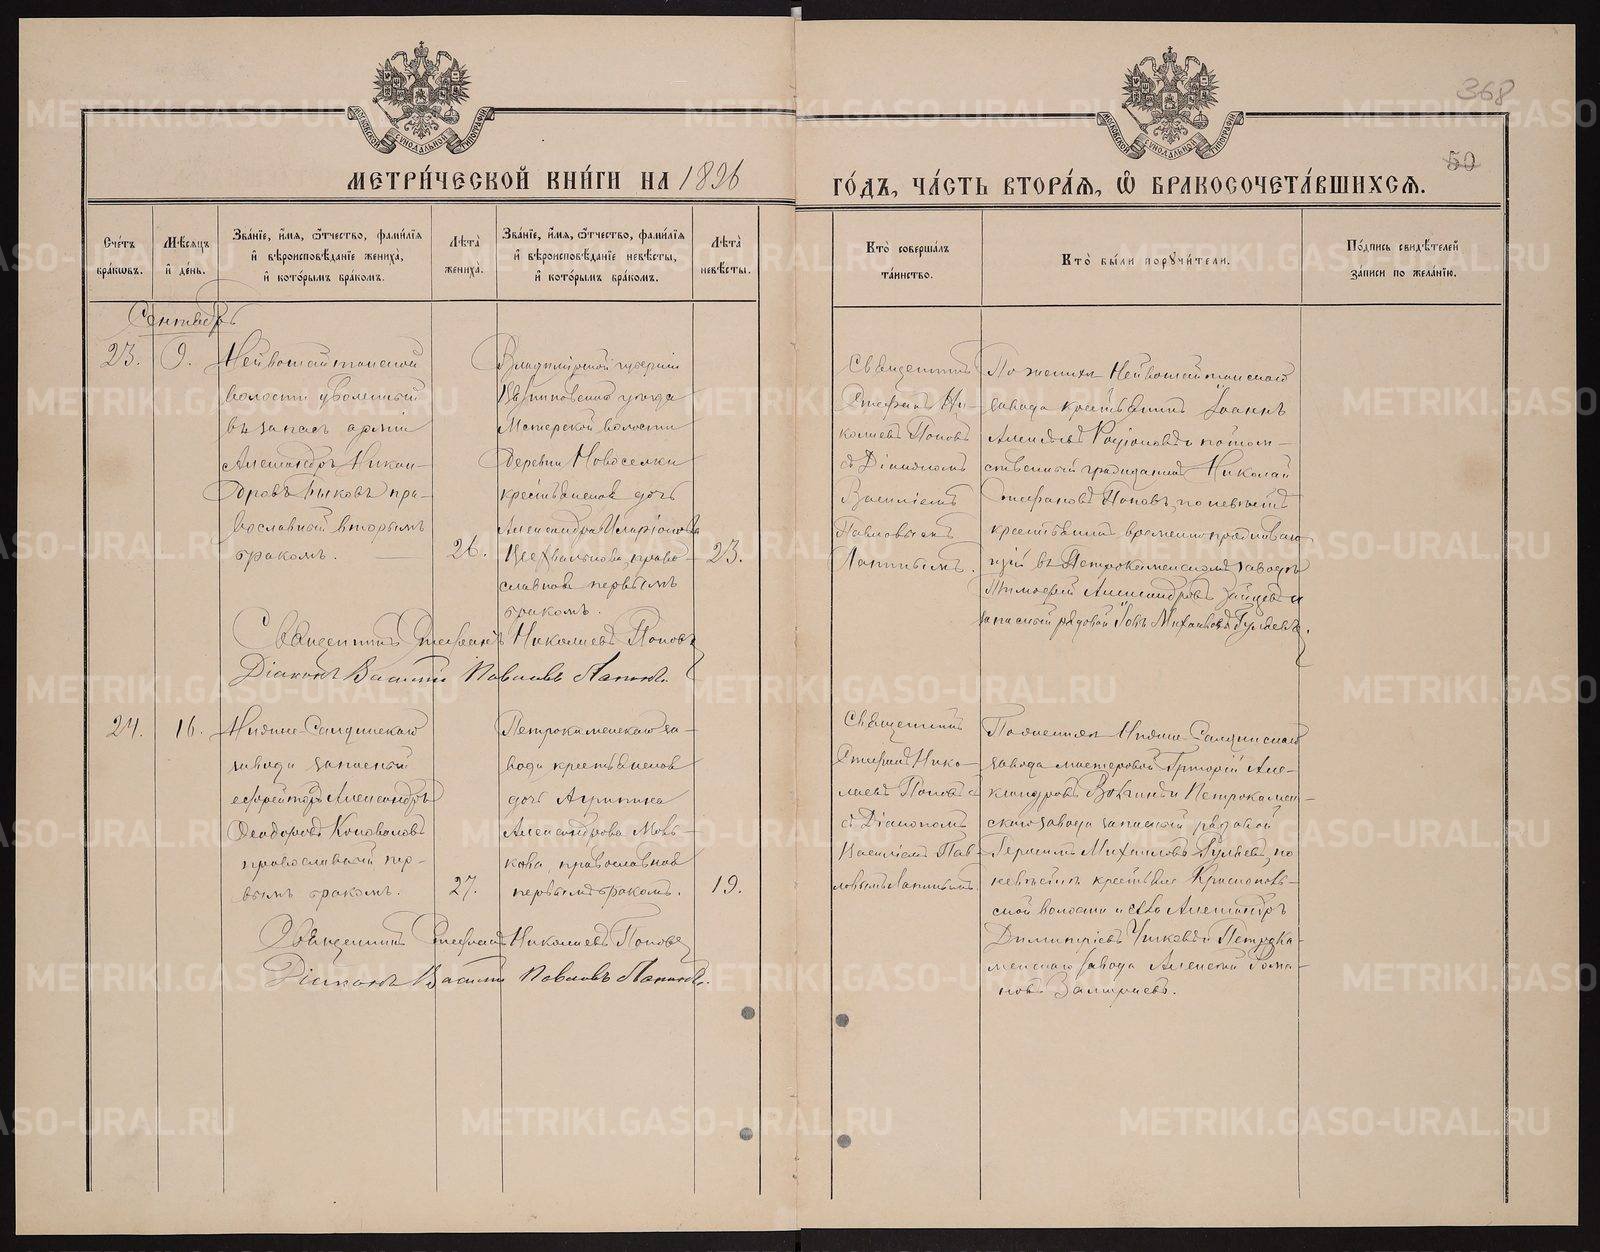 368
50
МЕТРИ́ЧЕСКОЙ КНИ́ГИ НА 1896
ГО́ДЪ, ЧА́СТЬ ВТОРА́Я, Ѡ҆ БРАКОСОЧЕТА́ВШИХСЯ.
Сче́тъ бра́ковъ.
Мѣ́сяцъ и҆ де́нь.
Зва́нїе, и҆́мя, ѻ҆́тчество, фами́лїя и҆ вѣроисповѣ́данїе жениха̀, и҆ кото́рымъ бра́комъ.
Лѣ́та жениха̀.
Зва́нїе, и҆́мя, ѻ҆́тчество, фами́лїя и҆ вѣроисповѣ́данїе невѣ́сты, и҆ кото́рымъ бра́комъ.
Лѣ́та невѣ́сты.
Кто̀ соверша́лъ та́инство.
Кто̀ бы́ли порꙋчи́тели.
По́дпись свидѣ́телей за́писи по жела́нїю.
Сентябрь
23.
9.
Нейвошайтанской
волости уволенный
въ запасъ армiи
Александръ Никан-
дровъ Быковъ пра-
вославный вторымъ
бракомъ.
26.
Владимiрской губернiи
уѣзда
Мстерской волости
деревни Новоселки
крестьянская дочь
Александра Иларiонова
православная первымъ
бракомъ.
23.
Священникъ
Стефанъ Ни-
колаевъ Поповъ
съ Дiакономъ
Василiемъ
Павловымъ
Лапинымъ.
По женихѣ Нейвошайтанскаго
завода крестьянинъ Iоаннъ
Алексѣевъ Родiоновъ и потом-
ственный гражданинъ Николай
Стефановъ Поповъ, по невѣстѣ
крестьянинъ временно проживаю-
щiй въ Петрокаменскомъ заводѣ
Тимофей Александровъ Зайцевъ и
запасный рядовой Iовъ Михайловъ Гуляевъ.
Священникъ Стефанъ Николаевъ Поповъ
Дiаконъ Василiй Павловъ Лапинъ.
24.
16.
Нижне-Салдинскаго
завода запасный
ефрейторъ Александръ
Феодоровъ Коноваловъ
православный пер-
вымъ бракомъ.
27.
Петрокаменскаго за-
вода крестьянская
дочь Агрипина
Александрова Мовь-
кова православная
первымъ бракомъ.
19.
Священникъ
Стефанъ Нико-
лаевъ Поповъ
съ Дiакономъ
Василiемъ Пав-
ловымъ Лапинымъ.
По женихѣ Нижне-Салдинскаго
завода мастеровой Григорiй Але-
ксандровъ и Петрокамен-
скаго завода запасный рядовой
Герасимъ Михайловъ Гуляевъ, по
невѣстѣ крестьяне Краснополь-
ской волости Александръ
Димитрiевъ и Петрока-
менскаго завода Алексѣй Рома-
новъ
Священникъ Стефанъ Николаевъ Поповъ
Дiаконъ Василiй Павловъ Лапинъ.
METRIKI.GASO-URAL.RU